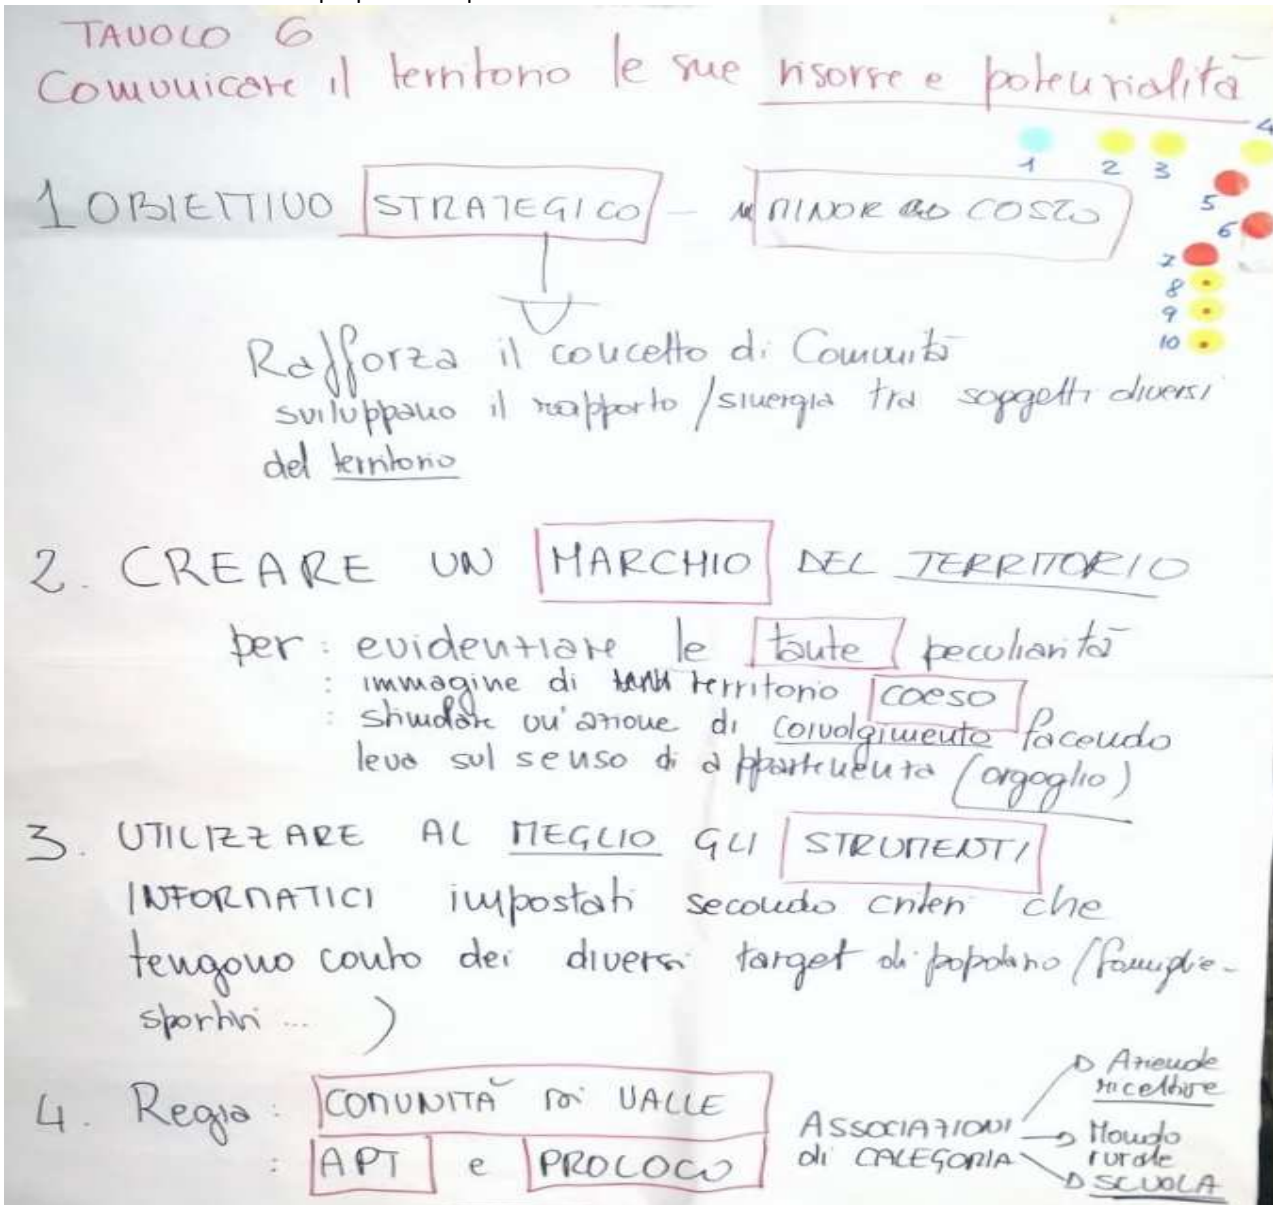 TAVOLO 6
Comunicare il territorio le sue risorse e potenzialità
1 2 3 4
5
6
7
8
9
10
1 OBIETTIVO STRATEGICO - MINOR COSTO
Rafforza il concetto di Comunità
sviluppano il rapporto/sinergia tra soggetti diversi
del territorio
2. CREARE UN MARCHIO DEL TERRITORIO
per: evidenziare le tante peculiarità
: immagine di territorio coeso
: stimolare un'azione di coivolgimento facendo
leva sul senso di appartenenza (orgoglio)
3. UTILIZZARE AL MEGLIO GLI STRUMENTI
INFORMATICI impostati secondo criteri che
tengono conto dei diversi target di (famiglie-
sportivi ... )
4. Regia: COMUNITÀ DI VALLE
: APT e PROLOCO
ASSOCIAZIONI
di CATEGORIA
Aziende
ricettive
Mondo
rurale
SCUOLA